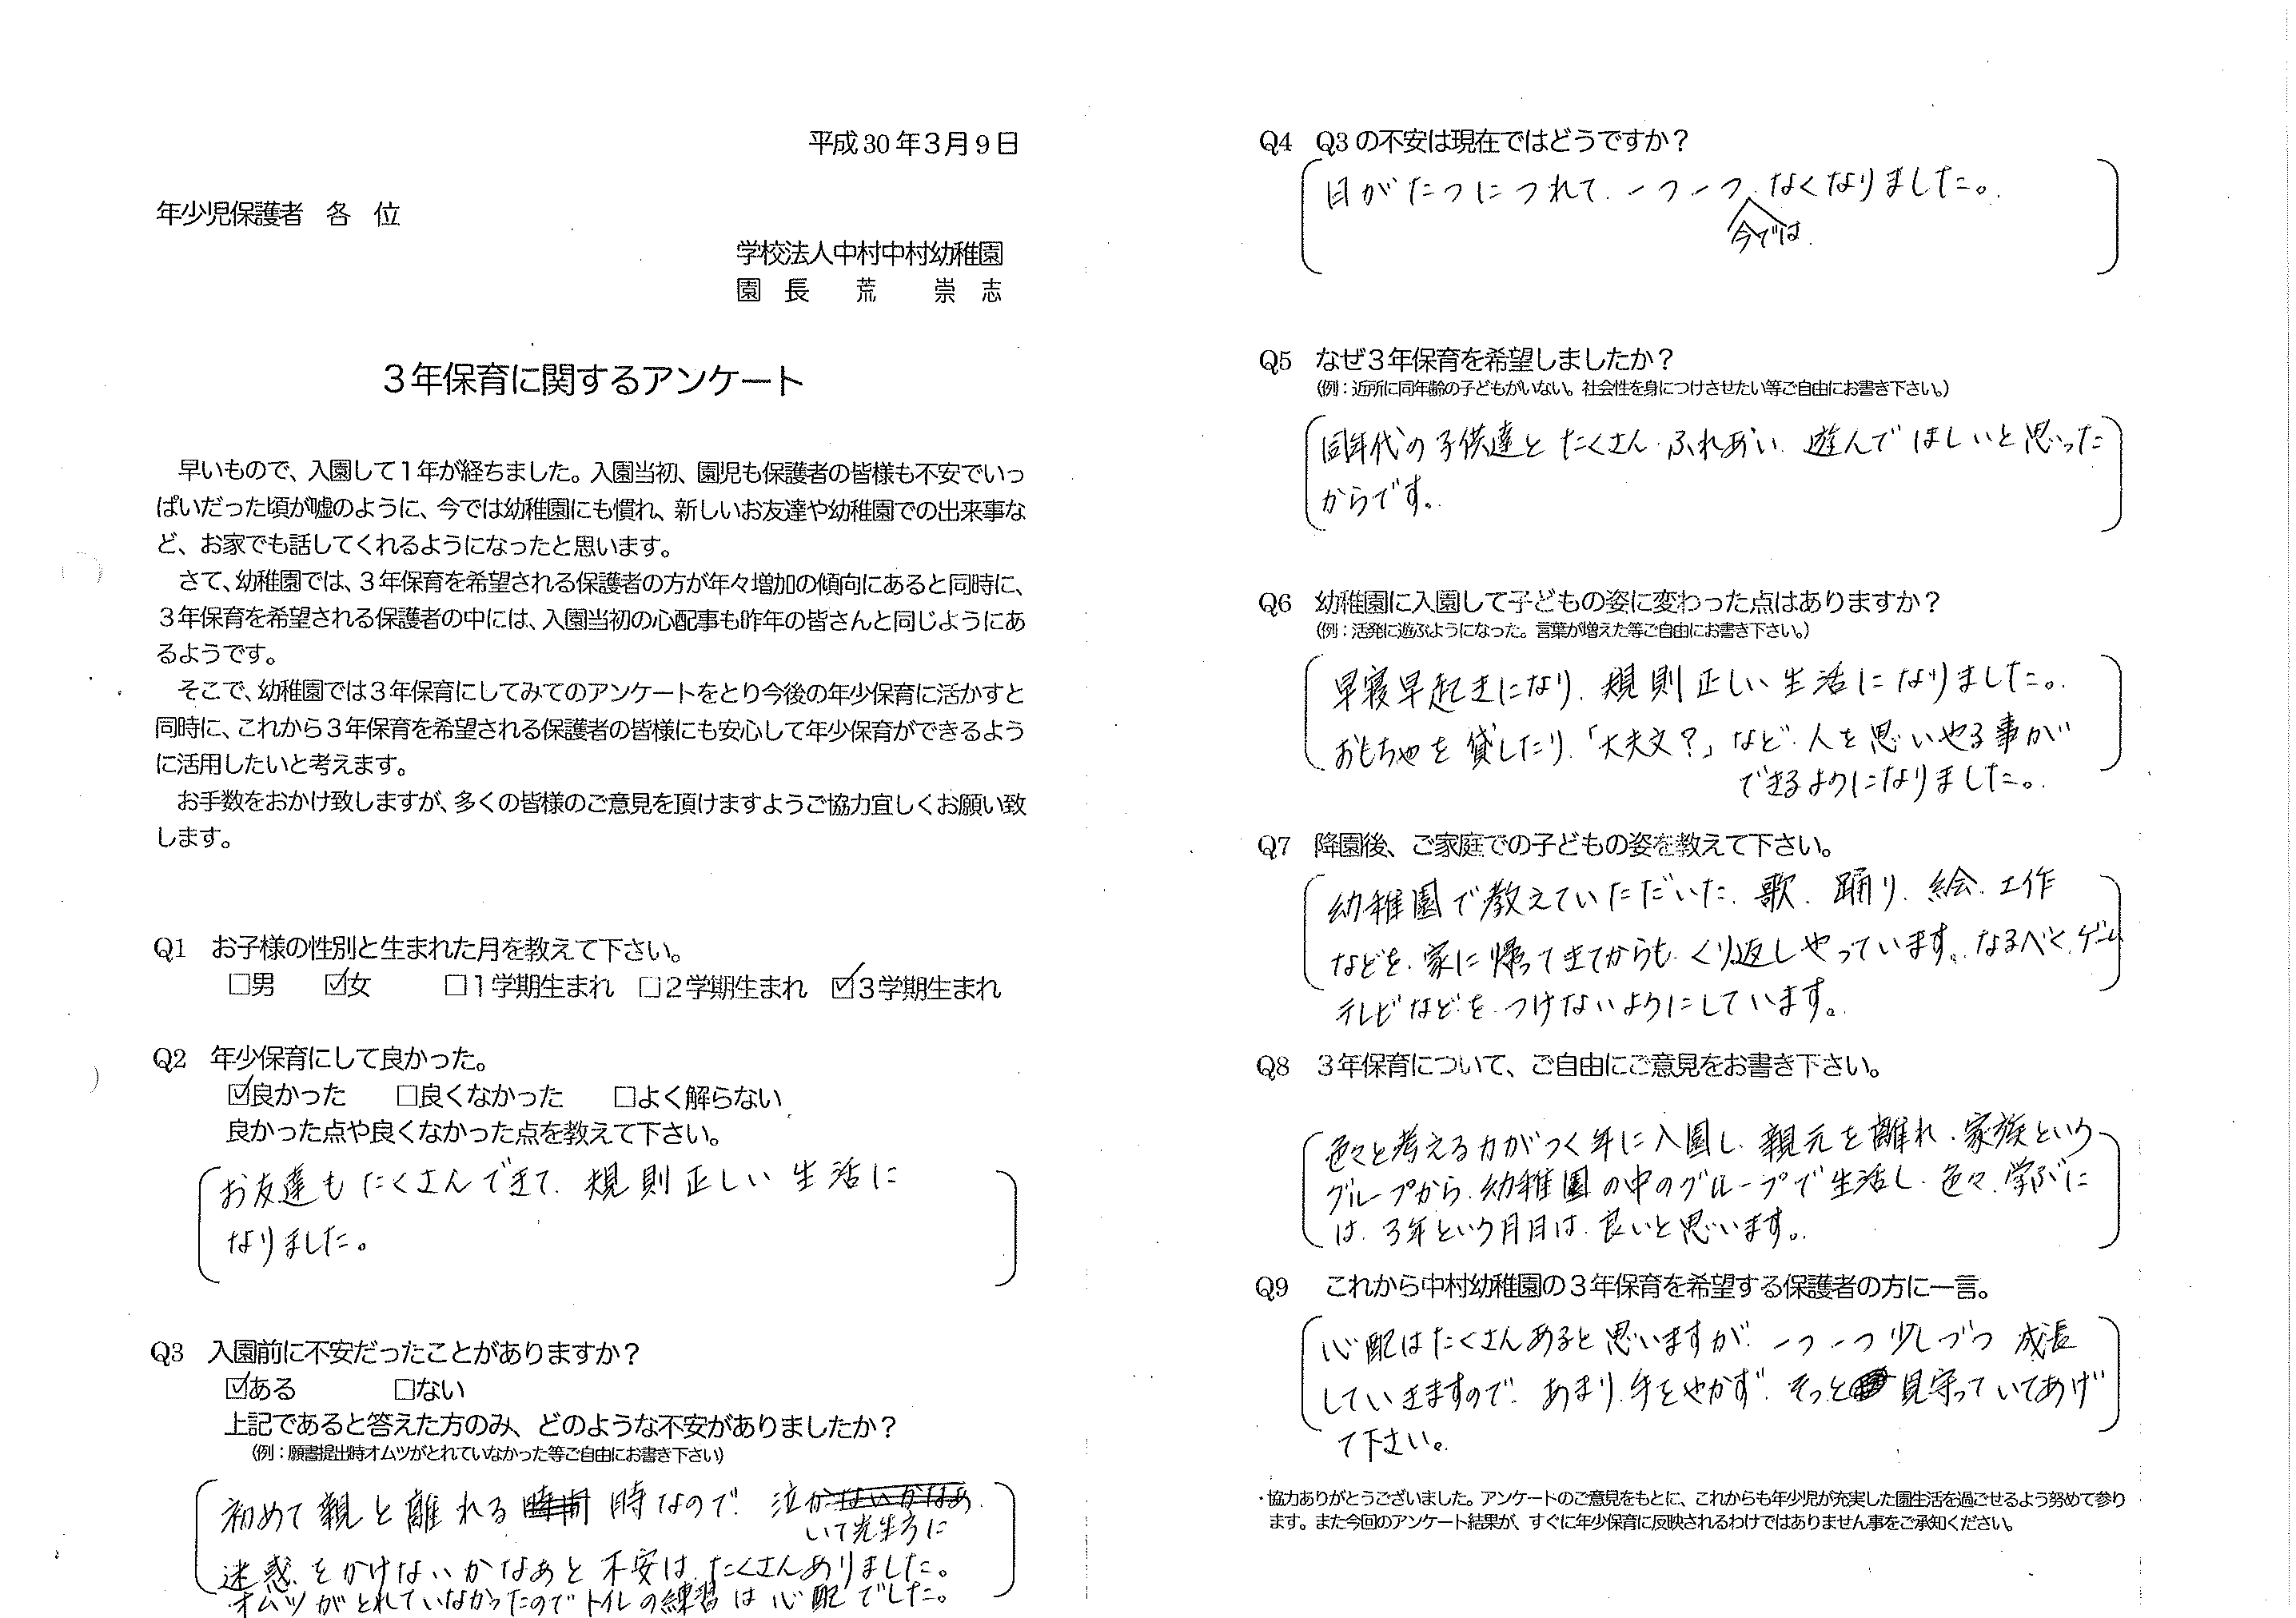 平成30年3月9日
年少児保護者　各　位
学校法人中村中村幼稚園
園　長　　荒　　崇　志
３年保育に関するアンケート
早いもので、入園して１年が経ちました。入園当初、園児も保護者の皆様も不安でいっ
ぱいだった頃が嘘のように、今では幼稚園にも慣れ、新しいお友達や幼稚園での出来事な
ど、お家でも話してくれるようになったと思います。
さて、幼稚園では、３年保育を希望される保護者の方が年々増加の傾向にあると同時に、
３年保育を希望される保護者の中には、入園当初の心配事も昨年の皆さんと同じようにあ
るようです。
そこで、幼稚園では３年保育にしてみてのアンケートをとり今後の年少保育に活かすと
同時に、これから３年保育を希望される保護者の皆様にも安心して年少保育ができるよう
に活用したいと考えます。
お手数をおかけ致しますが、多くの皆様のご意見を頂けますようご協力宜しくお願い致
します。
Q1　お子様の性別と生まれた月を教えて下さい。
□男　☑女　□１学期生まれ　□２学期生まれ　☑３学期生まれ
Q2　年少保育にして良かった。
☑良かった　□良くなかった　□よく解らない
良かった点や良くなかった点を教えて下さい。
お友達もたくさんできて、規則正しい生活に
なりました。
Q3　入園前に不安だったことがありますか？
☑ある　□ない
上記であると答えた方のみ、どのような不安がありましたか？
（例：願書提出時オムツがとれていなかった等ご自由にお書き下さい）
初めて親と離れる 時なので、泣
いて先生方に
迷惑をかけないかなあと不安は、たくさんありました。
オムツがとれていなかったのでトイレの練習は心配でした。
Q4　Q3の不安は現在ではどうですか？
日がたつにつれて、一つ一つ、なくなりました。
今では
Q5　なぜ３年保育を希望しましたか？
（例：近所に同年齢の子どもがいない。社会性を身につけさせたい等ご自由にお書き下さい。）
同年代の子供達とたくさん、ふれあい、遊んでほしいと思った
からです。
Q6　幼稚園に入園して子どもの姿に変わった点はありますか？
（例：活発に遊ぶようになった。言葉が増えた等ご自由にお書き下さい。）
早寝早起きになり、規則正しい生活になりました。
おもちゃを貸したり、「大夫丈？」など、人を思いやる事が
できるようになりました。
Q7　降園後、ご家庭での子どもの姿を教えて下さい。
幼稚園で教えていただいた、歌、踊り、絵、工作
などを、家に帰ってきてからも、くり返しやっています。なるべく、ゲーム
テレビなどを、つけないようにしています。
Q8　３年保育について、ご自由にご意見をお書き下さい。
色々と考える力がつく年に入園し、親元を離れ、家族という
グループから、幼稚園の中のグループで生活し、色々、学ぶに
は、3年という月日は、良いと思います。
Q9　これから中村幼稚園の３年保育を希望する保護者の方に一言。
心配はたくさんあると思いますが、一つ一つ少しづつ成長
していきますので、あまり、手をやかず、そっと見守っていてあげ
て下さい。
・協力ありがとうございました。アンケートのご意見をもとに、これからも年少児が充実した園生活を過ごせるよう努めて参り
ます。また今回のアンケート結果が、すぐに年少保育に反映されるわけではありません事をご承知ください。